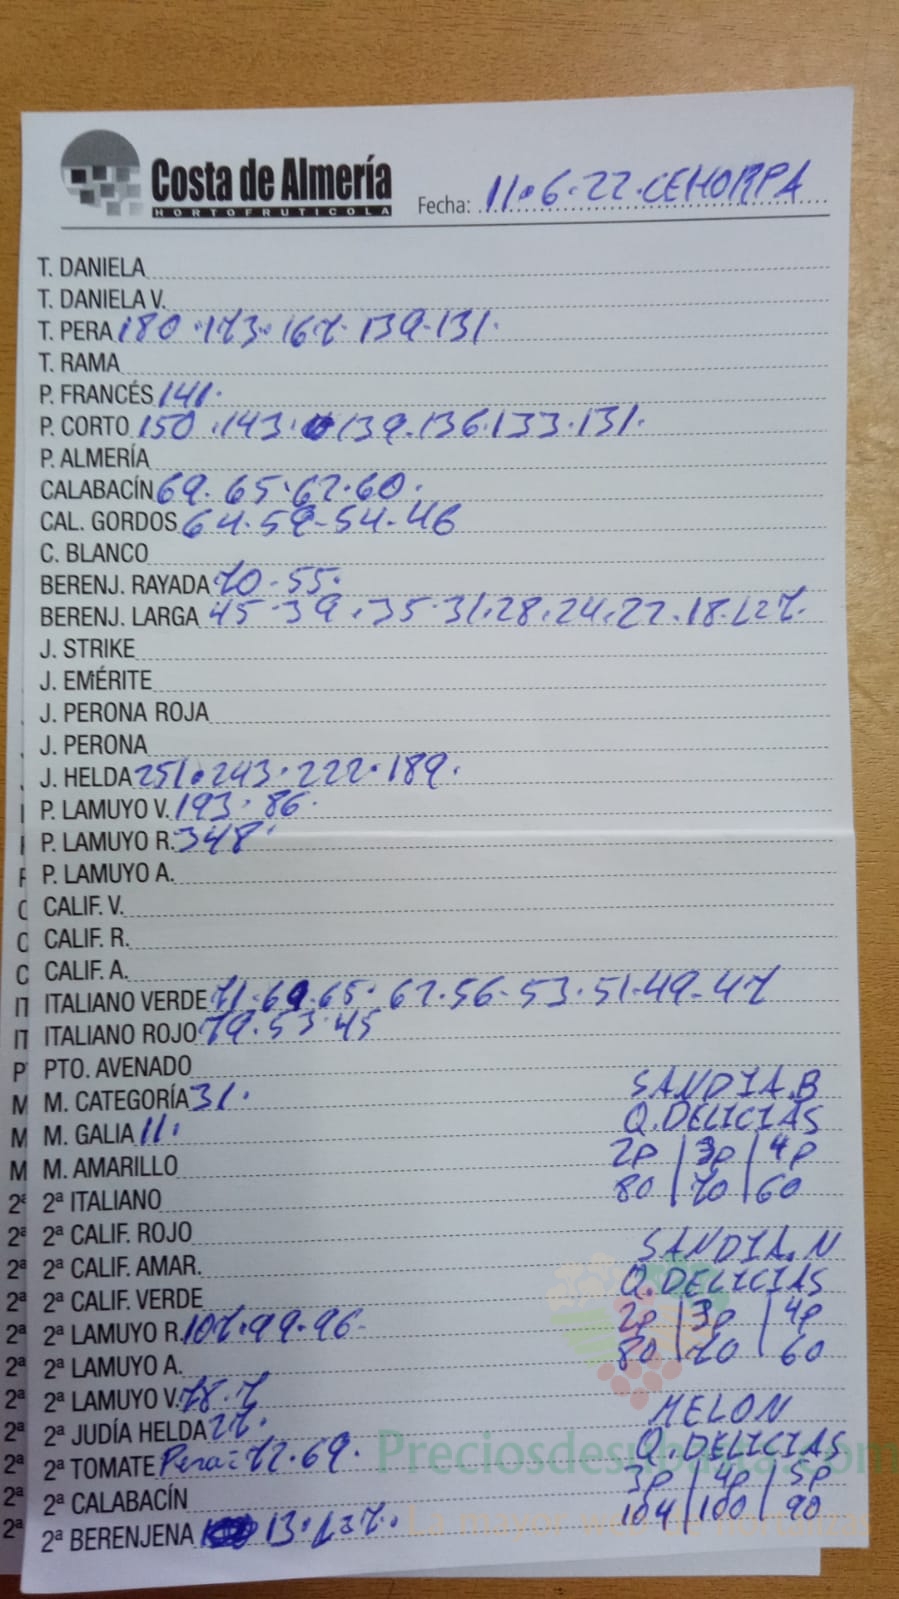 Costa de Almería
HORTOFRUTICOLA
Fecha: 11.6.22.CEHORPA
T. DANIELA
T. DANIELA V.
T. PERA 180.173.167.139.131.
T. RAMA
P. FRANCÉS 141.
P. CORTO 150.143.139.136.133.131.
P. ALMERÍA
CALABACÍN 69.65.62.60.
CAL. GORDOS 64.59-54-46
C. BLANCO
BERENJ. RAYADA 70-55.
BERENJ. LARGA 45.39.35.31.28.24.22.18.
J. STRIKE
J. EMÉRITE
J. PERONA ROJA
J. PERONA
J. HELDA 251.243.222.189.
P. LAMUYO V. 193.86.
P. LAMUYO R. 348
P. LAMUYO A.
CALIF. V.
CALIF. R.
CALIF. A.
ITALIANO VERDE 71.69.65.62.56-53.51-49-47
ITALIANO ROJO 79.53.45
PTO. AVENADO
M. CATEGORÍA 31.
M. GALIA 11.
M. AMARILLO
2ª ITALIANO
2ª CALIF. ROJO
2ª CALIF. AMAR.
2ª CALIF. VERDE
2ª LAMUYO R. 107.99.96-
2ª LAMUYO A.
2ª LAMUYO V. 78.7
2ª JUDÍA HELDA 27.
2ª TOMATE Pera: 72.69.
2ª CALABACÍN
2ª BERENJENA 13.
SANDIA.B
Q.DELICIAS
2p | 3p | 4p
80 | 70 | 60
SANDIA.N
Q.DELICIAS
2p | 3p | 4p
80 | 70 | 60
MELON
Q.DELICIAS
3p | 4p | 5p
104 | 100 | 90
Preciosdesubasta.com
La mayor web de hortalizas